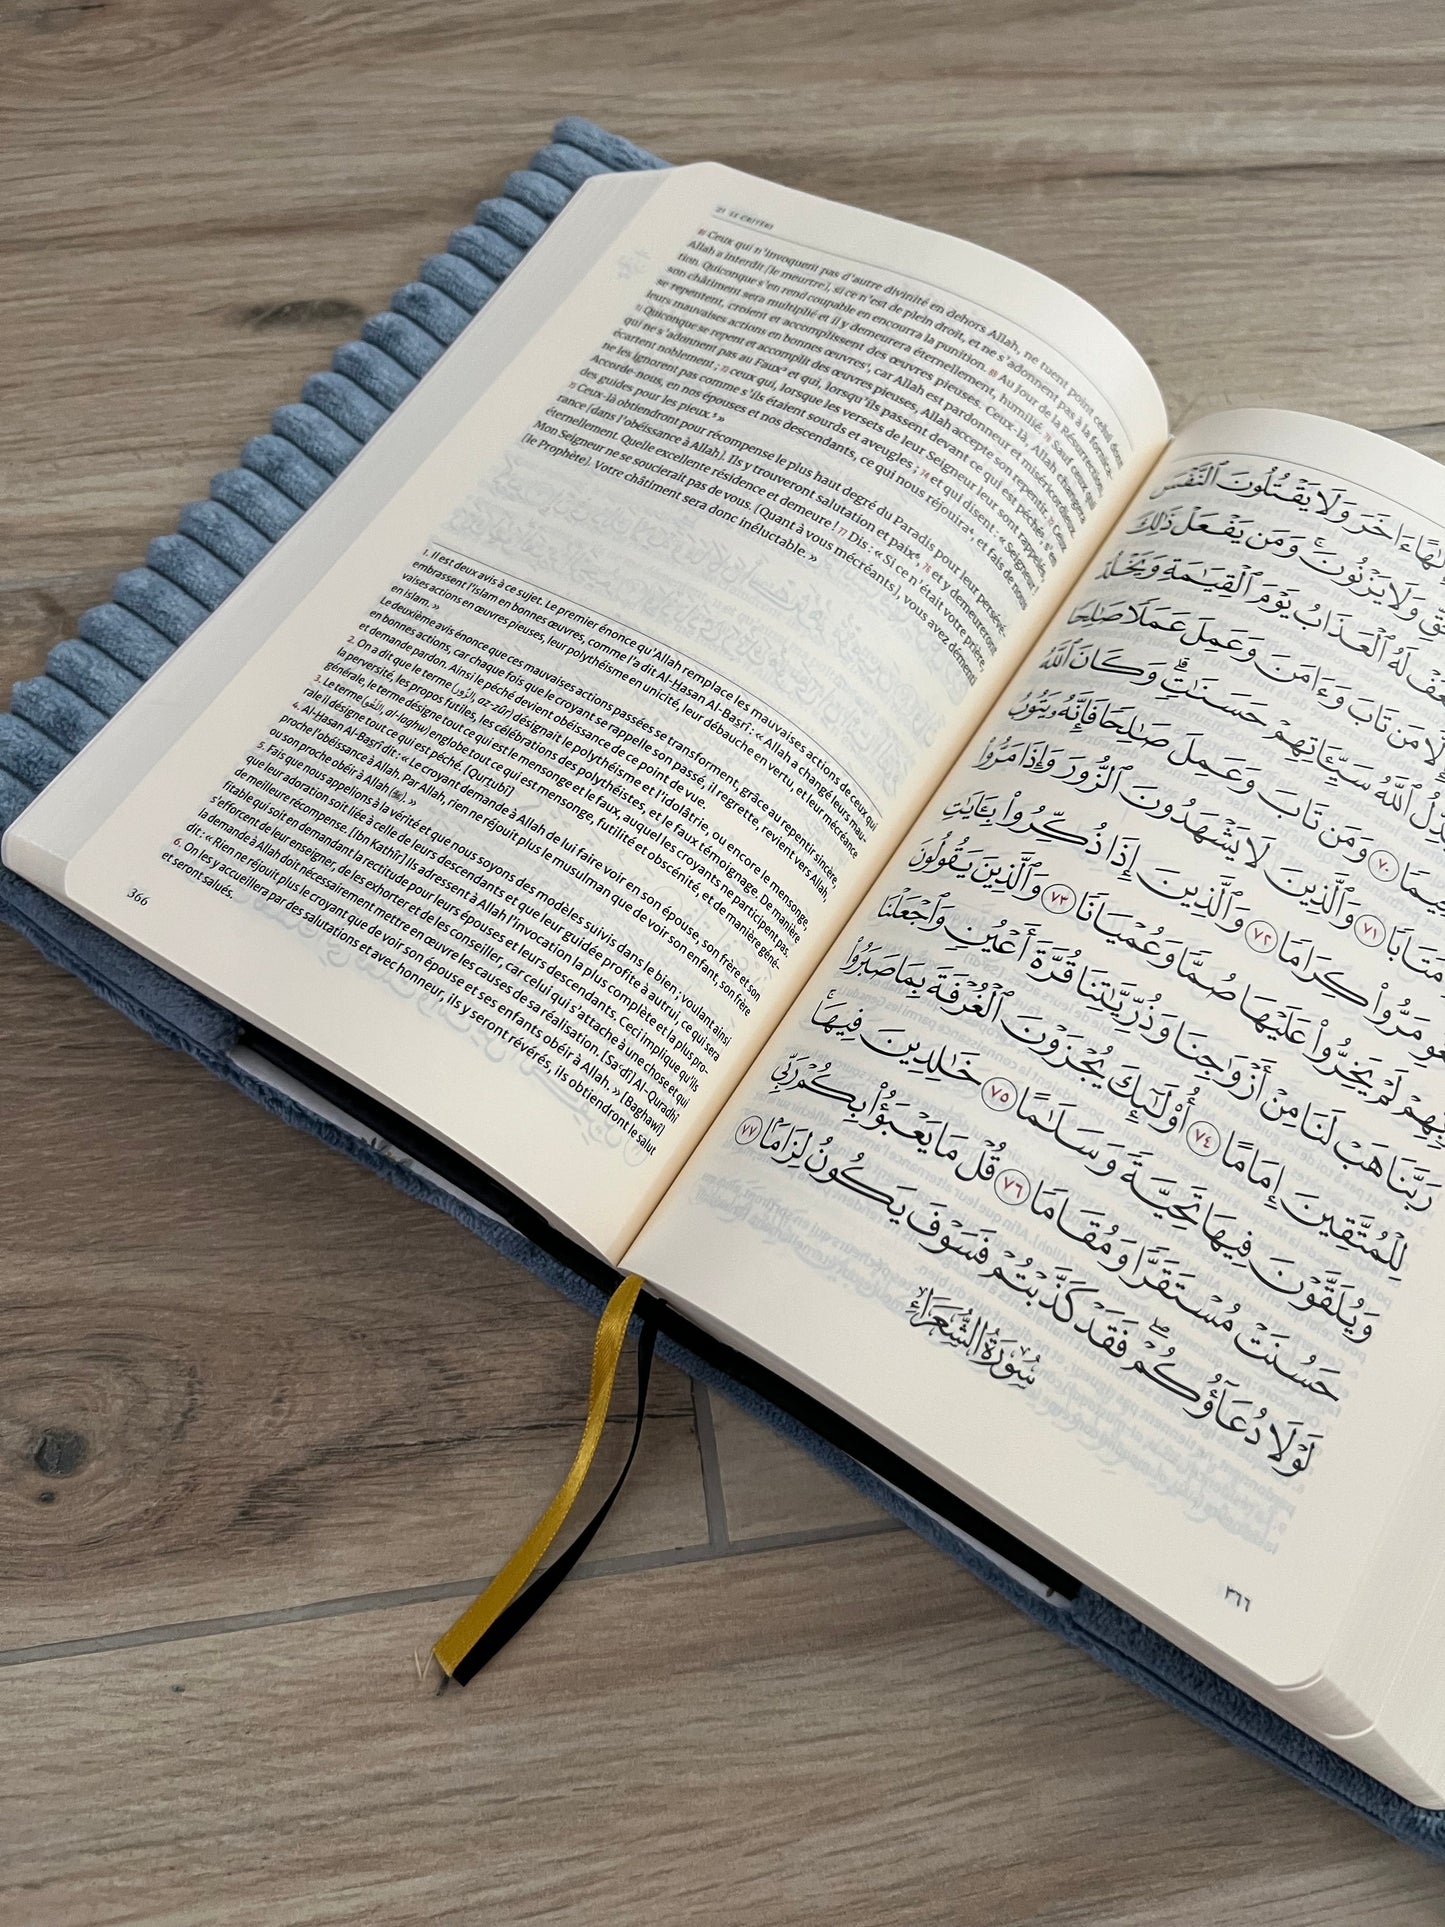 LE CRITÈRE
Ceux qui n'invoquent pas d'autre divinité en dehors Allah, ne tuent point celui dont
Allah a interdit [le meurtre], si ce n'est de plein droit, et ne s'adonnent pas à la fornica-
tion. Quiconque s'en rend coupable en encourra la punition. 69 Au Jour de la Résurrection,
son châtiment sera multiplié et il y demeurera éternellement, humilié. 70 Sauf ceux qui
se repentent, croient et accomplissent des œuvres pieuses. Ceux-là, Allah changera
leurs mauvaises actions en bonnes œuvres¹, car Allah est pardonneur et miséricordieux.
71 Quiconque se repent et accomplit des œuvres pieuses, Allah accepte son repentir. 72 Ceux
qui ne s'adonnent pas au Faux² et qui, lorsqu'ils passent devant ce qui est péché³ s'en
écartent noblement ; 73 ceux qui, lorsque les versets de leur Seigneur leur sont rappelés,
ne les ignorent pas comme s'ils étaient sourds et aveugles ; 74 et qui disent : « Seigneur !
Accorde-nous, en nos épouses et nos descendants, ce qui nous réjouira⁴, et fais de nous
des guides pour les pieux.⁵ »
75 Ceux-là obtiendront pour récompense le plus haut degré du Paradis pour leur persévé-
rance [dans l'obéissance à Allah]. Ils y trouveront salutation et paix⁶, 76 et y demeureront
éternellement. Quelle excellente résidence et demeure ! 77 Dis : « Si ce n'était votre prière,
Mon Seigneur ne se soucierait pas de vous. [Quant à vous mécréants], vous avez démenti
[le Prophète]. Votre châtiment sera donc inéluctable. »
1. Il est deux avis à ce sujet. Le premier énonce qu'Allah remplace les mauvaises actions de ceux qui
embrassent l'islam en bonnes œuvres, comme l'a dit Al-Ḥasan Al-Baṣrî : « Allah a changé leurs mau-
vaises actions en œuvres pieuses, leur polythéisme en unicité, leur débauche en vertu, et leur mécréance
en islam. »
Le deuxième avis énonce que ces mauvaises actions passées se transforment, grâce au repentir sincère,
en bonnes actions, car chaque fois que le croyant se rappelle son passé, il regrette, revient vers Allah,
et demande pardon. Ainsi le péché devient obéissance de ce point de vue.
2. On a dit que le terme (الزُّور, az-zûr) désignait le polythéisme et l'idolâtrie, ou encore le mensonge,
la perversité, les propos futiles, les célébrations des polythéistes, et le faux témoignage. De manière
générale, le terme désigne tout ce qui est le mensonge et le faux, auquel les croyants ne participent pas.
3. Le terme (اللَّغْو, al-laghw) englobe tout ce qui est mensonge, futilité et obscénité, et de manière géné-
rale il désigne tout ce qui est péché. [Qurṭubî]
4. Al-Ḥasan Al-Baṣrî dit : « Le croyant demande à Allah de lui faire voir en son épouse, son frère et son
proche l'obéissance à Allah. Par Allah, rien ne réjouit plus le musulman que de voir son enfant, son frère
ou son proche obéir à Allah (ﷻ). »
5. Fais que nous appelions à la vérité et que nous soyons des modèles suivis dans le bien ; voulant ainsi
que leur adoration soit liée à celle de leurs descendants et que leur guidée profite à autrui, ce qui sera
de meilleure récompense. [Ibn Kathîr] Ils adressent à Allah l'invocation la plus complète et la plus pro-
fitable qui soit en demandant la rectitude pour leurs épouses et leurs descendants. Ceci implique qu'ils
s'efforcent de leur enseigner, de les exhorter et de les conseiller, car celui qui s'attache à une chose et qui
la demande à Allah doit nécessairement mettre en œuvre les causes de sa réalisation. [Sa'dî] Al-Quradhî
dit : « Rien ne réjouit plus le croyant que de voir son épouse et ses enfants obéir à Allah. » [Baghawî]
6. On les y accueillera par des salutations et avec honneur, ils y seront révérés, ils obtiendront le salut
et seront salués.
366
إِلَٰهًا ءَاخَرَ وَلَا يَقۡتُلُونَ ٱلنَّفۡسَ
وَلَا يَزۡنُونَۚ وَمَن يَفۡعَلۡ ذَٰلِكَ
لَهُ ٱلۡعَذَابُ يَوۡمَ ٱلۡقِيَٰمَةِ وَيَخۡلُدۡ
إِلَّا مَن تَابَ وَءَامَنَ وَعَمِلَ عَمَلٗا صَٰلِحٗا
ٱللَّهُ سَيِّـَٔاتِهِمۡ حَسَنَٰتٖۗ وَكَانَ ٱللَّهُ
٧٠ وَمَن تَابَ وَعَمِلَ صَٰلِحٗا فَإِنَّهُۥ يَتُوبُ
مَتَابٗا ٧١ وَٱلَّذِينَ لَا يَشۡهَدُونَ ٱلزُّورَ وَإِذَا مَرُّواْ
مَرُّواْ كِرَامٗا ٧٢ وَٱلَّذِينَ إِذَا ذُكِّرُواْ بِـَٔايَٰتِ
لَمۡ يَخِرُّواْ عَلَيۡهَا صُمّٗا وَعُمۡيَانٗا ٧٣ وَٱلَّذِينَ يَقُولُونَ
رَبَّنَا هَبۡ لَنَا مِنۡ أَزۡوَٰجِنَا وَذُرِّيَّٰتِنَا قُرَّةَ أَعۡيُنٖ وَٱجۡعَلۡنَا
لِلۡمُتَّقِينَ إِمَامًا ٧٤ أُوْلَٰٓئِكَ يُجۡزَوۡنَ ٱلۡغُرۡفَةَ بِمَا صَبَرُواْ
وَيُلَقَّوۡنَ فِيهَا تَحِيَّةٗ وَسَلَٰمًا ٧٥ خَٰلِدِينَ فِيهَاۚ
حَسُنَتۡ مُسۡتَقَرّٗا وَمُقَامٗا ٧٦ قُلۡ مَا يَعۡبَؤُاْ بِكُمۡ رَبِّي
لَوۡلَا دُعَآؤُكُمۡۖ فَقَدۡ كَذَّبۡتُمۡ فَسَوۡفَ يَكُونُ لِزَامَۢا ٧٧
سُورَةُ الشُّعَرَاءِ
٣٦٦